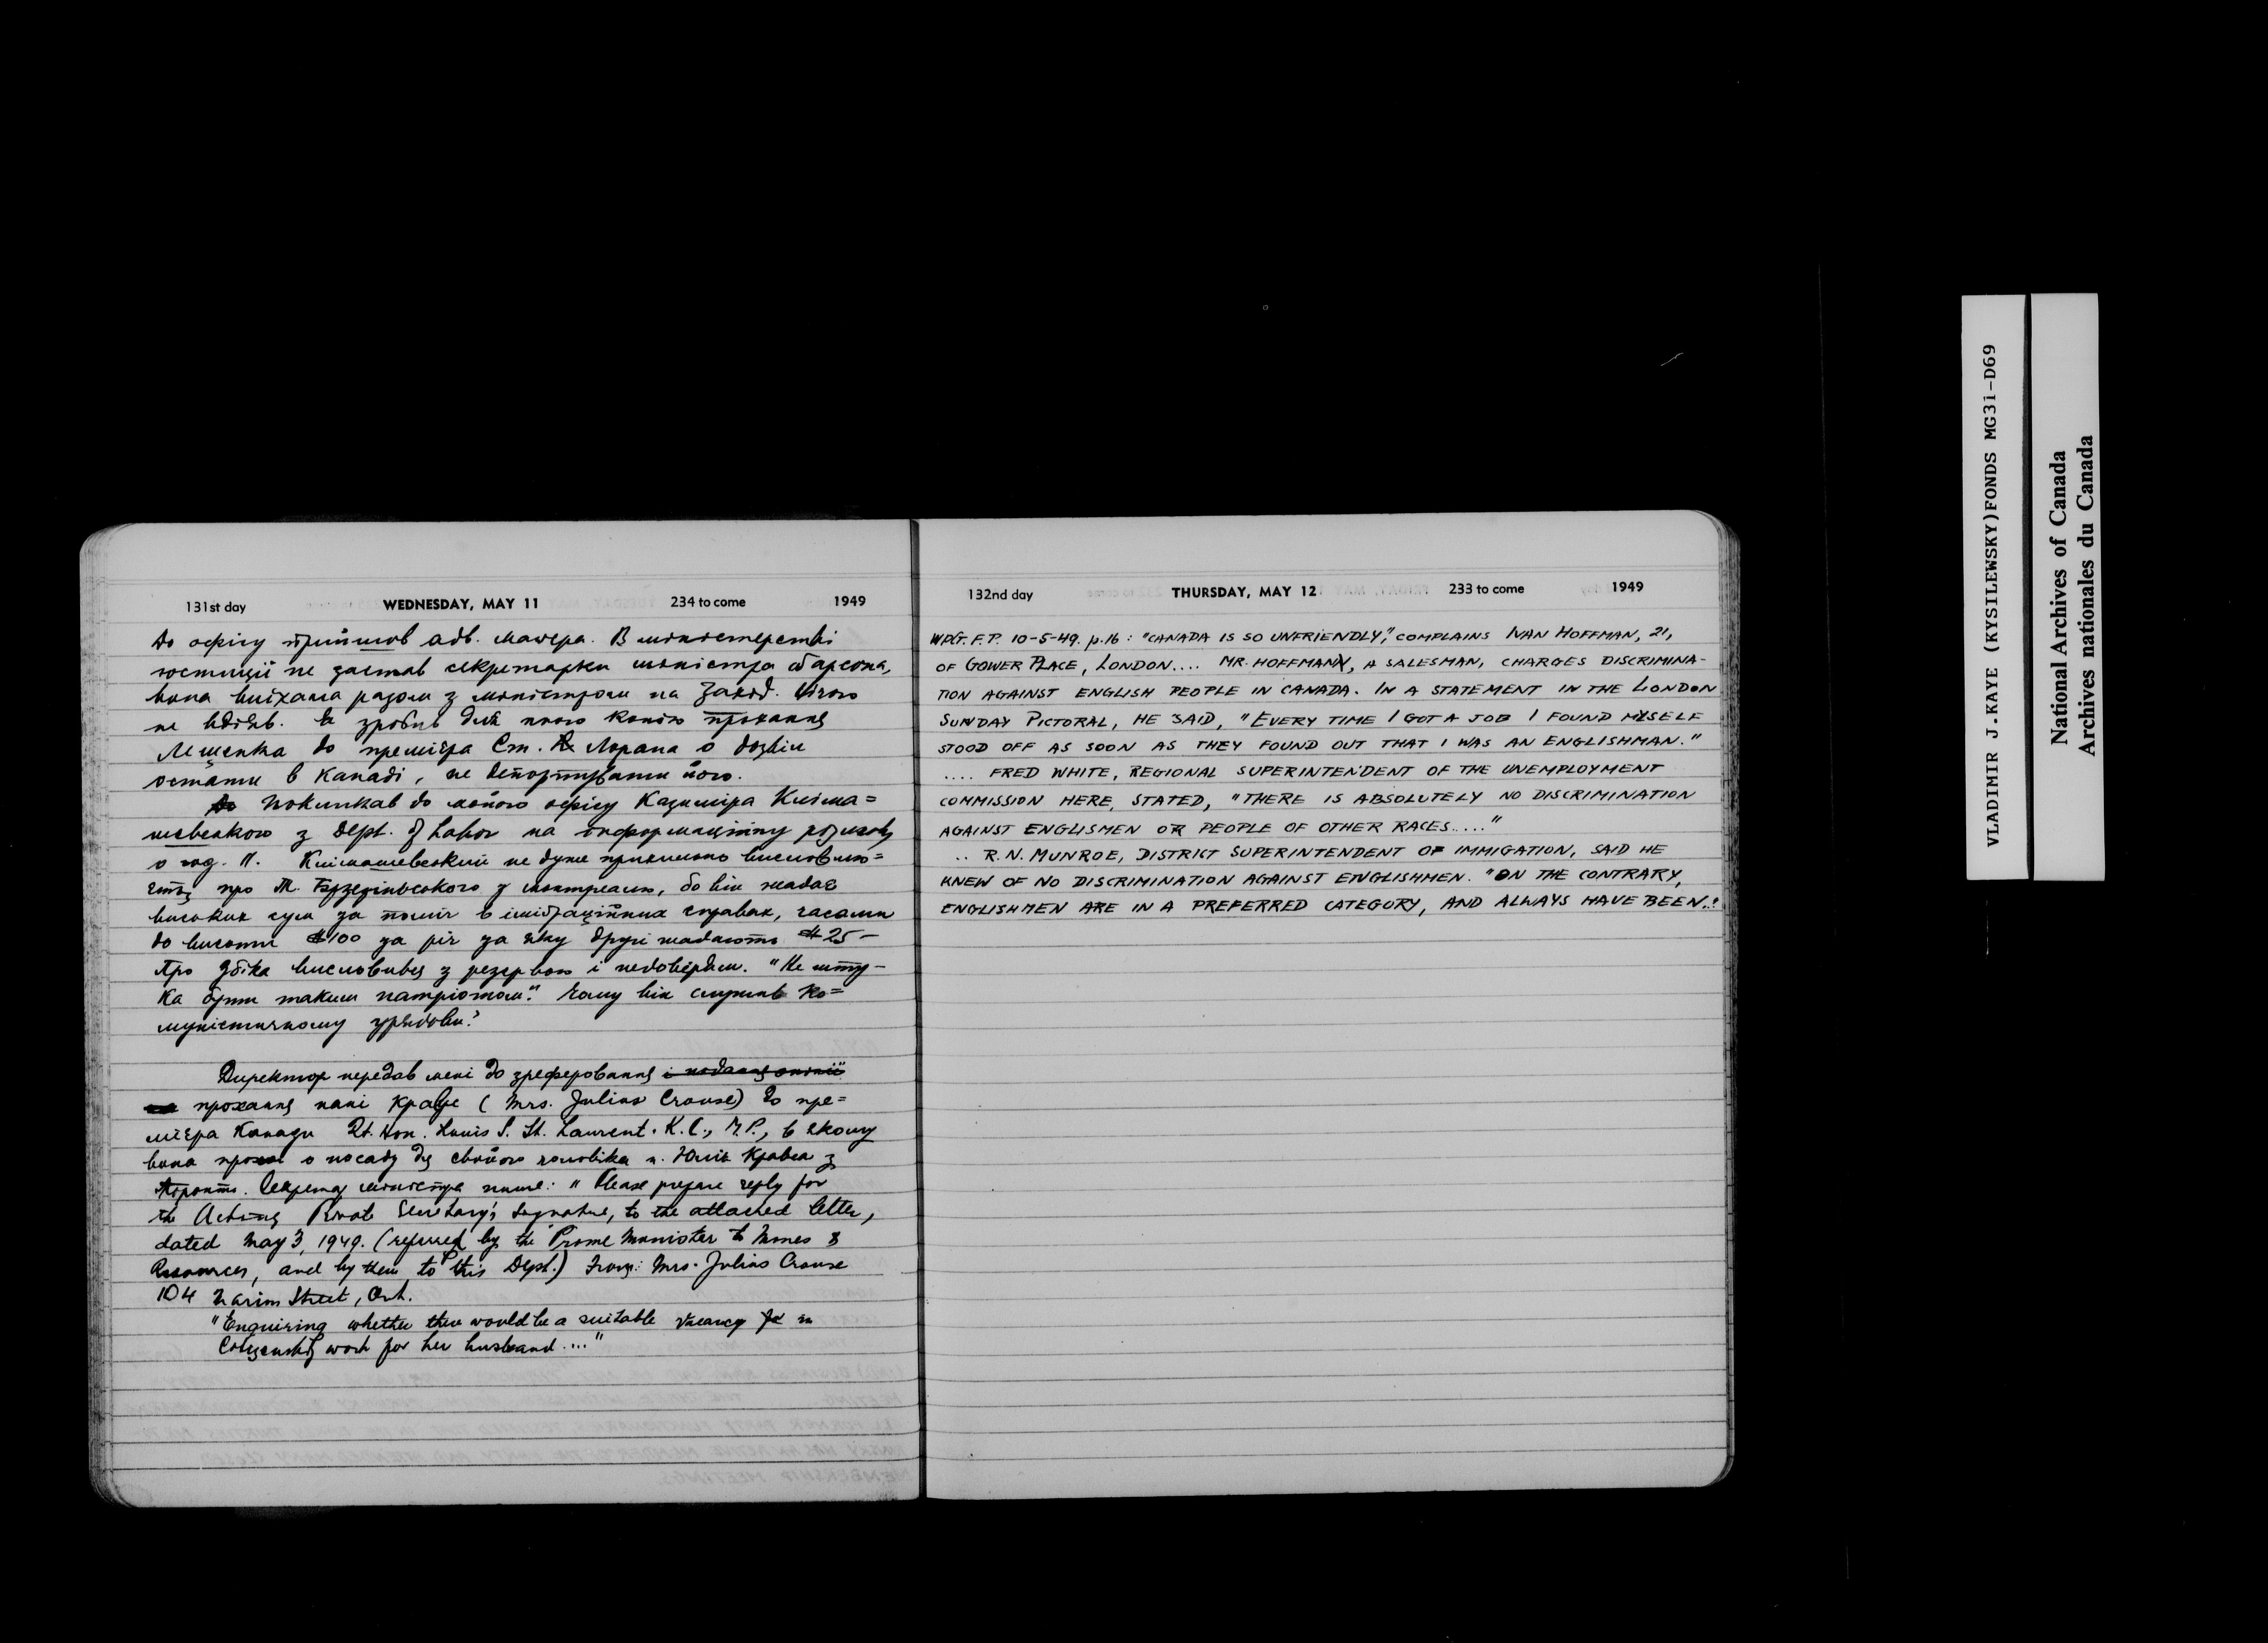 131st day WEDNESDAY, MAY 11 234 to come 1949
До офісу прийшов адв. Мачера. В міністерстві
юстиції не застав секретарки міністра Ґарсона,
вона виїхала разом з міністром на Захід. Нічого
не вдіяв. Я зробив для нього копію прохання
Лещенка до премієра Ст. Лорана о дозвіл
остати в Канаді, не депортувати його.
Покликав до мойого офісу Казимира Клїма=
шевського з Dept. of Labor на інформаційну розмову
о год. 11. Клїмашевський не дуже прихильно висловлю=
ється про Т. у Монтреалю, бо він жадає
високих сум за поміч в іміґраційних справах, часами
до висоти $100 за річ за яку другі жадають $25-
Про висловився з резервою і недовірям. "Не шту-
ка бути таким патріотом". Чому він служив ко=
муністичному урядови?
Директор передав мені до зреферовання і подання опінії
прохання пані Кравс (Mrs. Julius Crouse) до пре=
мієра Канади Rt. Hon. Louis S. St. Laurent. K.C., M.P., в якому
вона просить о посаду для свойого чоловіка п. Юлія Кравса з
Торонта. Секретар міністра пише: "Please prepare reply for
the Acting Private Secretary's signature, to the attached letter,
dated May 3, 1949. (referred by the Prime Minister to Mines &
Resources, and by them to this Dept.) From: Mrs. Julius Crouse
104 Street, Ont.
"Enquiring whether there would be a suitable vacancy in
Citizenship work for her husband..."
132nd day THURSDAY, MAY 12 233 to come 1949
WPG. F.P. 10-5-49. p.16: "CANADA IS SO UNFRIENDLY," COMPLAINS IVAN HOFFMAN, 21,
OF GOWER PLACE, LONDON.... MR. HOFFMAN, A SALESMAN, CHARGES DISCRIMINA-
TION AGAINST ENGLISH PEOPLE IN CANADA. IN A STATEMENT IN THE LONDON
SUNDAY PICTORAL, HE SAID, "EVERY TIME I GOT A JOB I FOUND MYSELF
STOOD OFF AS SOON AS THEY FOUND OUT THAT I WAS AN ENGLISHMAN."
.... FRED WHITE, REGIONAL SUPERINTENDENT OF THE UNEMPLOYMENT
COMMISSION HERE, STATED, "THERE IS ABSOLUTELY NO DISCRIMINATION
AGAINST ENGLISMEN OR PEOPLE OF OTHER RACES...."
.. R.N. MUNROE, DISTRICT SUPERINTENDENT OF IMMIGATION, SAID HE
KNEW OF NO DISCRIMINATION AGAINST ENGLISHMEN. "ON THE CONTRARY,
ENGLISHMEN ARE IN A PREFERRED CATEGORY, AND ALWAYS HAVE BEEN.."
VLADIMIR J.KAYE (KYSILEWSKY)FONDS MG31-D69
National Archives of Canada
Archives nationales du Canada